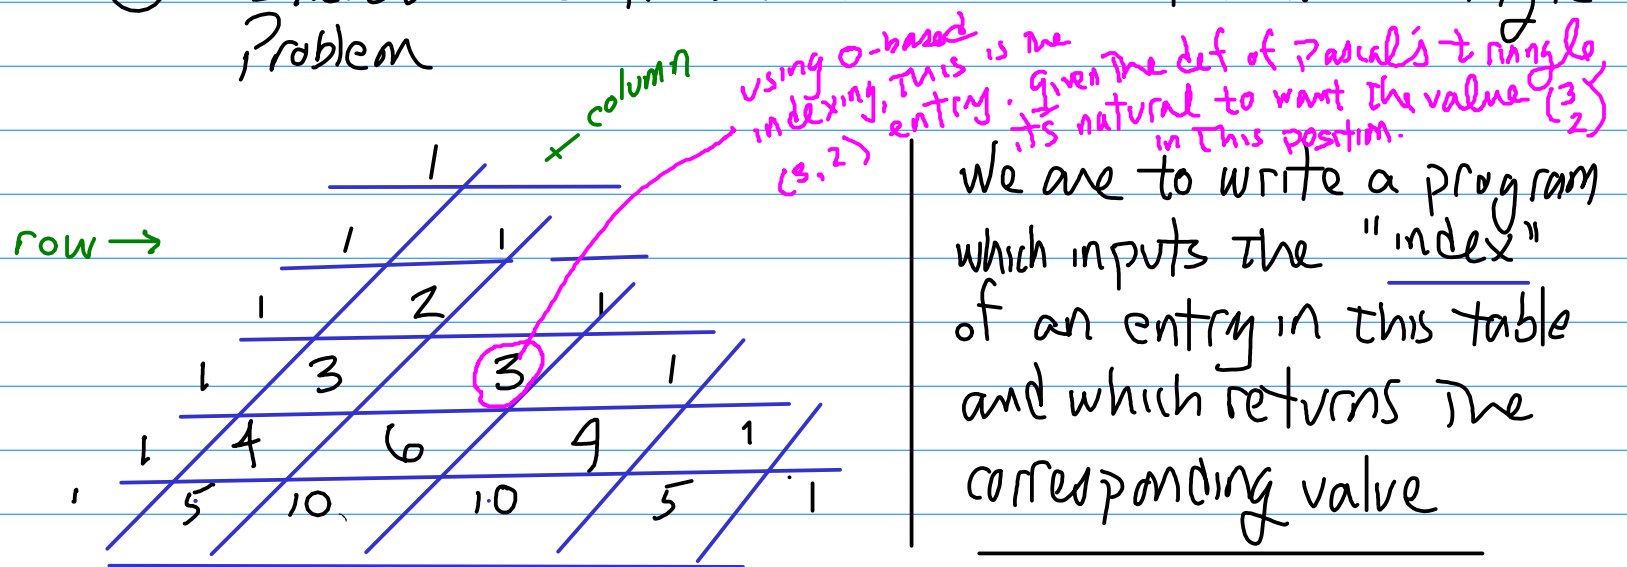 Problem
column
using 0-based
indexing, this is the
(3,2) entry. given the def of Pascal's tringle,
it's natural to want the value (3 2)
in this position.
row →
1
1 1
1 2 1
1 3 3 1
1 4 6 4 1
1 5 10 10 5 1
We are to write a program
which inputs the "index"
of an entry in this table
and which returns the
corresponding value